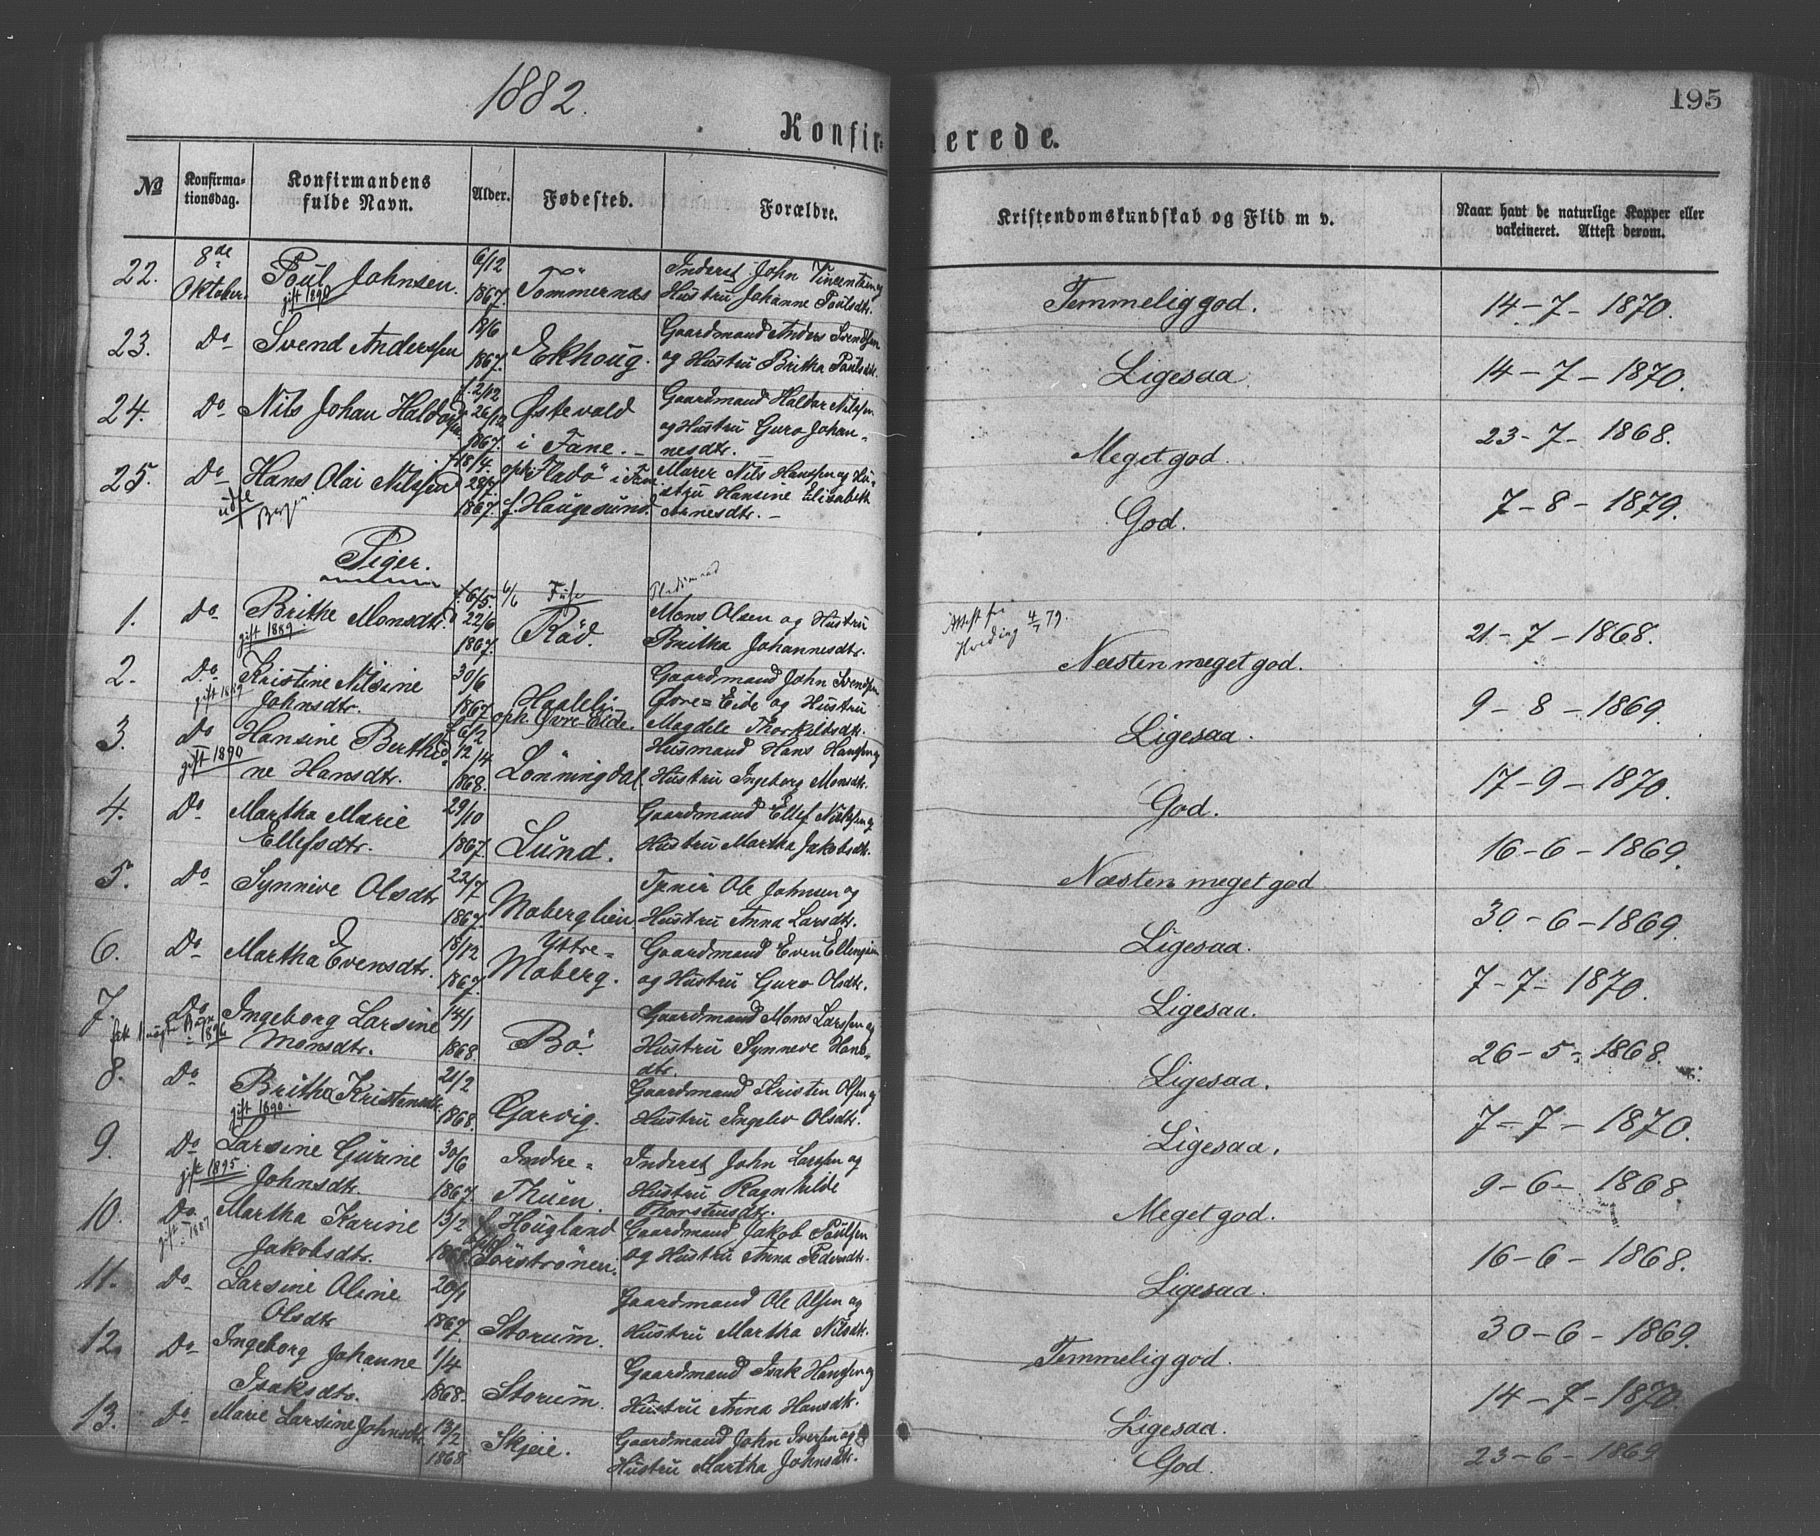 1882.
195
Konfirmerede.
No Konfirmationsdag. Konfirmandens fulde Navn. Alder. Fødested. Forældre. Kristendomskundskab og Flid m v. Naar havt de naturlige Kopper eller vakcineret. Attest derom.
22. 8de Poul Johnsen. 6/12 Tømmernæs Inderst John Vincentsen og Temmelig god. 14-7-1870.
Oktober. gift 1890 1867. Hustru Johanne Poulsdtr.
23. Do Svend Anderssen 18/6 Ekhoug. Gaardmand Anders Svendsen Ligesaa. 14-7-1870.
1867. og Hustru Britha Poulsdtr.
24. Do Nils Johan Haldorsen f. 2/12 Østevold Gaardmand Haldor Nilssen Meget god. 23-7-1868.
26/12 i Fane. og Hustru Guro Johan-
1867. nesdtr.
25. Do Hans Olai Nilssen f 18/4. opk. Fladø i Fane Murer Nils Hanssen og Hu- God. 7-8-1879.
28/7 stru Hansine Elisabeth
1867. f. Haugesund. Arnesdtr.
Piger.
1. Do Brithe Monsdtr. f. 6/5. 6/6 Fuse Pladsmand Attest fra
gift 1889. 22/6 Rød. Mons Olsen og Hustru Hveding 4/7 79. 21-7-1868.
1867. Britha Johannesdtr. Næsten meget god.
2. Do Kristine Nilsine 30/6 Gaardmand John Svendsen
gift 1889 Johnsdtr. 1867. Haaleli Øvre=Eide og Hustru Ligesaa. 9-8-1869.
opk. Øvre-Eide. Magdele Thorkildsdtr.
3. Do Hansine Berthi- f. 6/2 Lønningdal. Husmand Hans Hanssen og God. 17-9-1870.
gift 1890 ne Hansdtr. 12/4 1868. Hustru Ingeborg Monsdtr.
4. Do Martha Marie 29/10 Lund. Gaardmand Ellef Nielssen og Næsten meget god. 16-6-1869.
Ellefsdtr. 1867. Hustru Martha Jakobsdtr.
5. Do Synnive Olsdtr 22/7 Moberglien Ole Johnsen og Ligesaa. 30-6-1869.
1867. Hustru Anna Larsdtr.
6. Do Martha Evensdtr. 18/12 Yttre= Gaardmand Even Ellingsen Ligesaa. 7-7-1870.
1867. Moberg. og Hustru Guro Olsdtr.
7. Do Ingeborg Larsine 14/1 Bø. Gaardmand Mons Larssen og Ligesaa. 26-5-1868.
1896 Monsdtr. 1868. Hustru Synneve Hans-
dtr.
8. Do Britha Kristensdtr. 21/2 Gjærvig. Gaardmand Kristen Olsen og Ligesaa. 7-7-1870.
gift 1890. 1868. Hustru Ingelev Olsdtr.
9. Do Larsine Gurine 30/6 Indre= Inderst John Larssen og Meget god. 9-6-1868
gift 1895 Johnsdtr. 1867 Thuen. Hustru Ragnhilde
Thorstensdtr.
10. Do Martha Karine 13/2 f Hougland Gaardmand Jakob Poulsen Ligesaa. 16-6-1868.
gift 1887 Jakobsdtr. 1868 Sørstrønen. og Hustru Anna Pedersdtr.
11. Do Larsine Oline 20/1 Storum. Gaardmand Ole Olsen og Temmelig god. 30-6-1869.
Olsdtr 1867. Hustru Martha Nilsdtr.
12. Do Ingeborg Johanne 1/4 Storum. Gaardmand Isak Hanssen og Ligesaa. 14-7-1870.
Isaksdtr. 1868. Hustru Anna Hansdtr.
13. Do Marie Larsine Johnsdtr. 13/2 Skjeie. Gaardmand John Iversen og God. 23-6-1869
1868 Hustru Martha Johnsdtr.